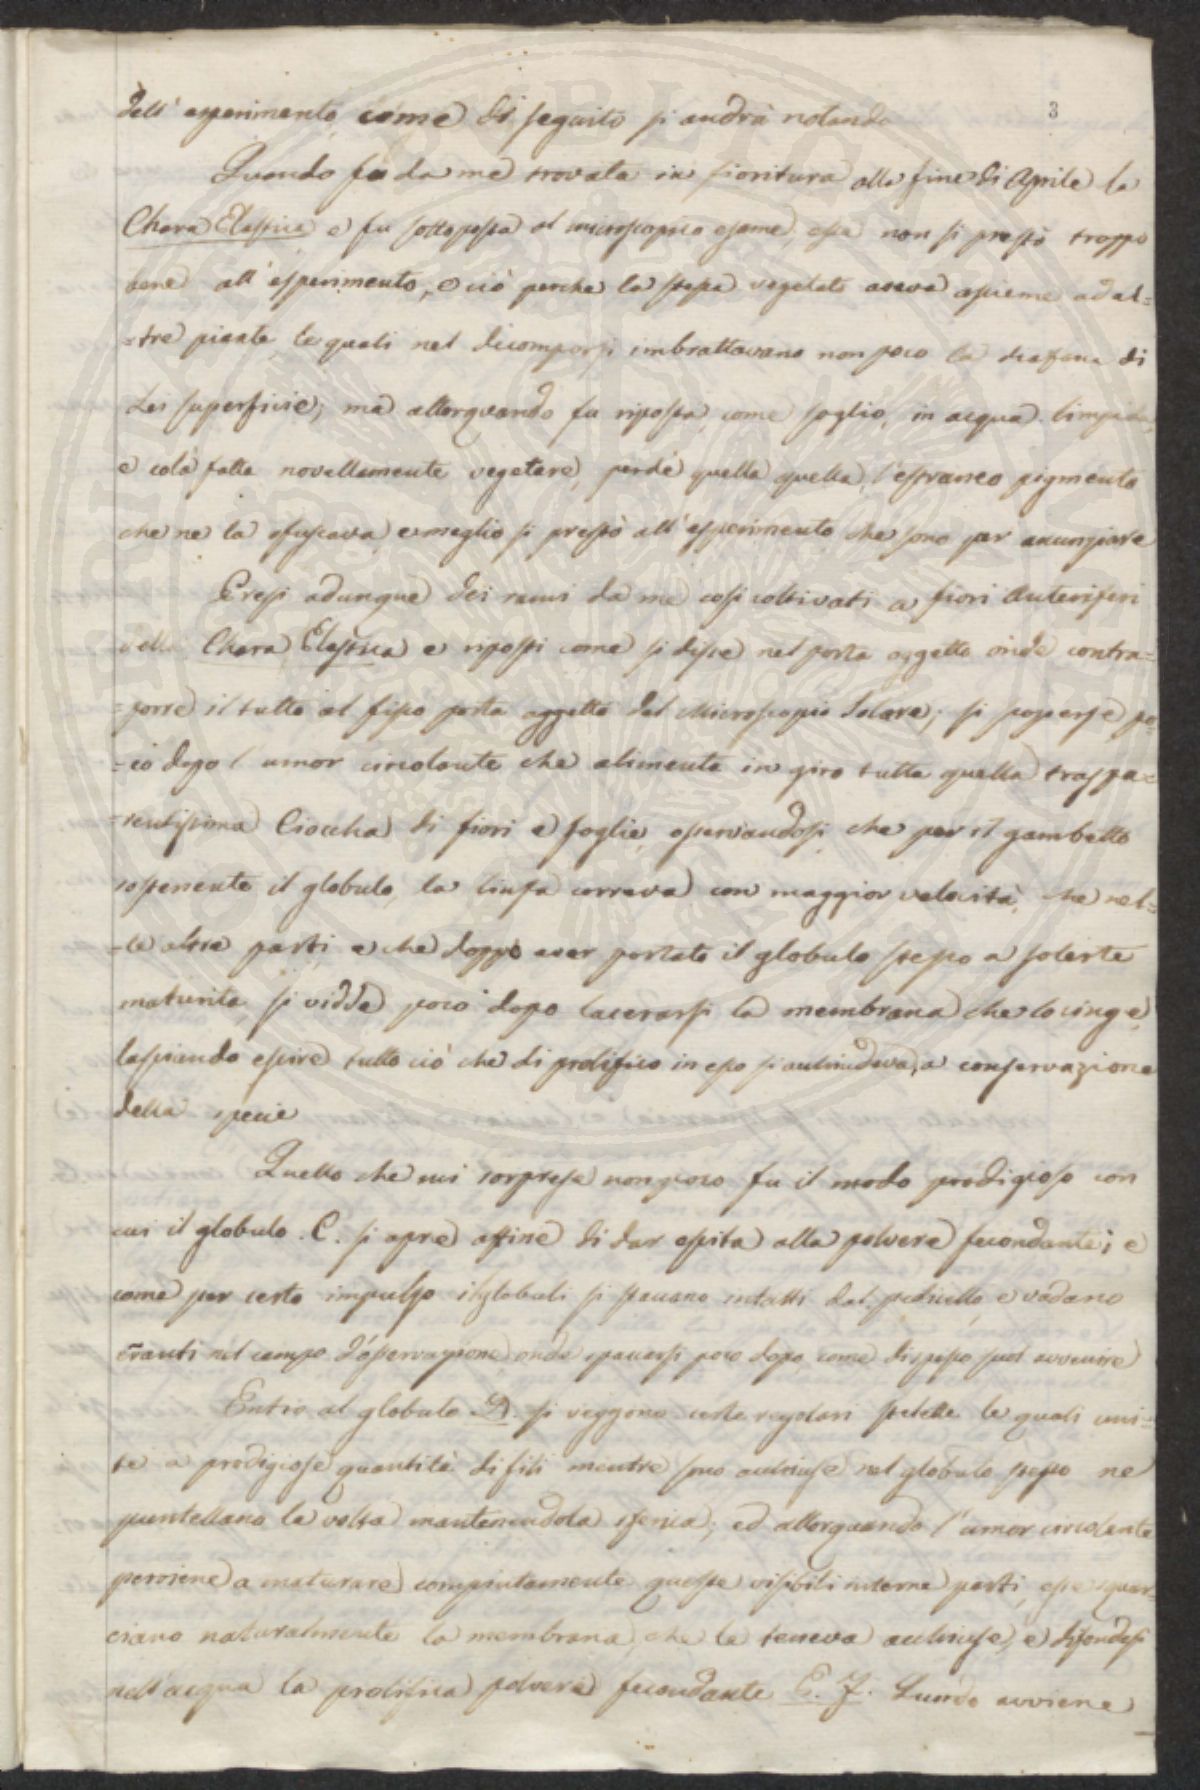 3
dell' esperimento come di seguito si andrà notando
Quando fu da me trovata in fioritura alla fine di Aprile la
Chara Elastica e fu sottoposta al microscopico esame, essa non si prestò troppo
bene all' esperimento, e ciò perche la stessa vegetato aveva assieme ad al=
=tre piante le quali nel decomporsi imbrattavano non poco la diafana di
Lei superficie; ma allorquando fu riposta, come soglio, in acqua limpida,
e colà fatta novellamente vegetare, perdè quella quella l'estraneo pigmento
che ne la offuscava e meglio si prestò all' esperimento che sono per anunziare
Presi adunque dei rami da me così coltivati a fiori Anteriferi
della Chara Elastica e riposti come si disse nel porta oggetto onde contra=
=porre il tutto al fisso porta oggetto del Microscopio Solare; si scoperse po=
=co dopo l' umor circolante che alimenta in giro tutta quella traspa=
=rentissima Ciocca di fiori e foglie, osservandosi che per il gambetto
sostenente il globulo, la linfa correva con maggior velocità, che nel=
=le altre parti, e che doppo aver portato il globulo stesso a solerte
maturita, si vidde poco dopo lacerarsi la membrana che lo cinge,
lasciando escire tutto ciò che di prolifico in esso si acchiudeva, a conservazione
della specie
Quello che mi sorprese non poco fu il modo prodigioso con
cui il globulo. C. si apre affine di dar escita alla polvere fecondante; e
come per certo impulso i globuli si staccano intatti dal pedicello, e vadano
erranti nel campo d'osservazione, onde spaccarsi poco dopo, come di spesso suol avvenire
Entro al globulo D. si veggono certe regolari stelette le quali uni=
te a prodigiose quantità di fili mentre sono acchiuse nel globulo stesso ne
puntellano la volta mantenendola sferica; ed allorquando l'umor circolante
perviene a maturare compiutamente queste visibili interne parti, esse squar=
ciano naturalmente la membrana, che le teneva acchiuse, e difondesi
nell'acqua la prolifica polvere fecondante E. F. Quando avviene